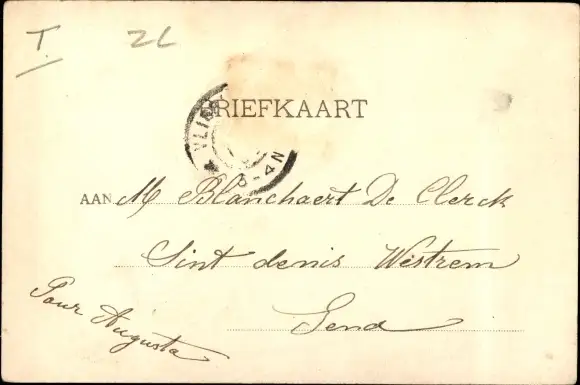 T. 2L
BRIEFKAART
VLIS
3-4N
AAN M Blanchaert De Clerck
Sint denis Westrem
Gend
Pour Augusta